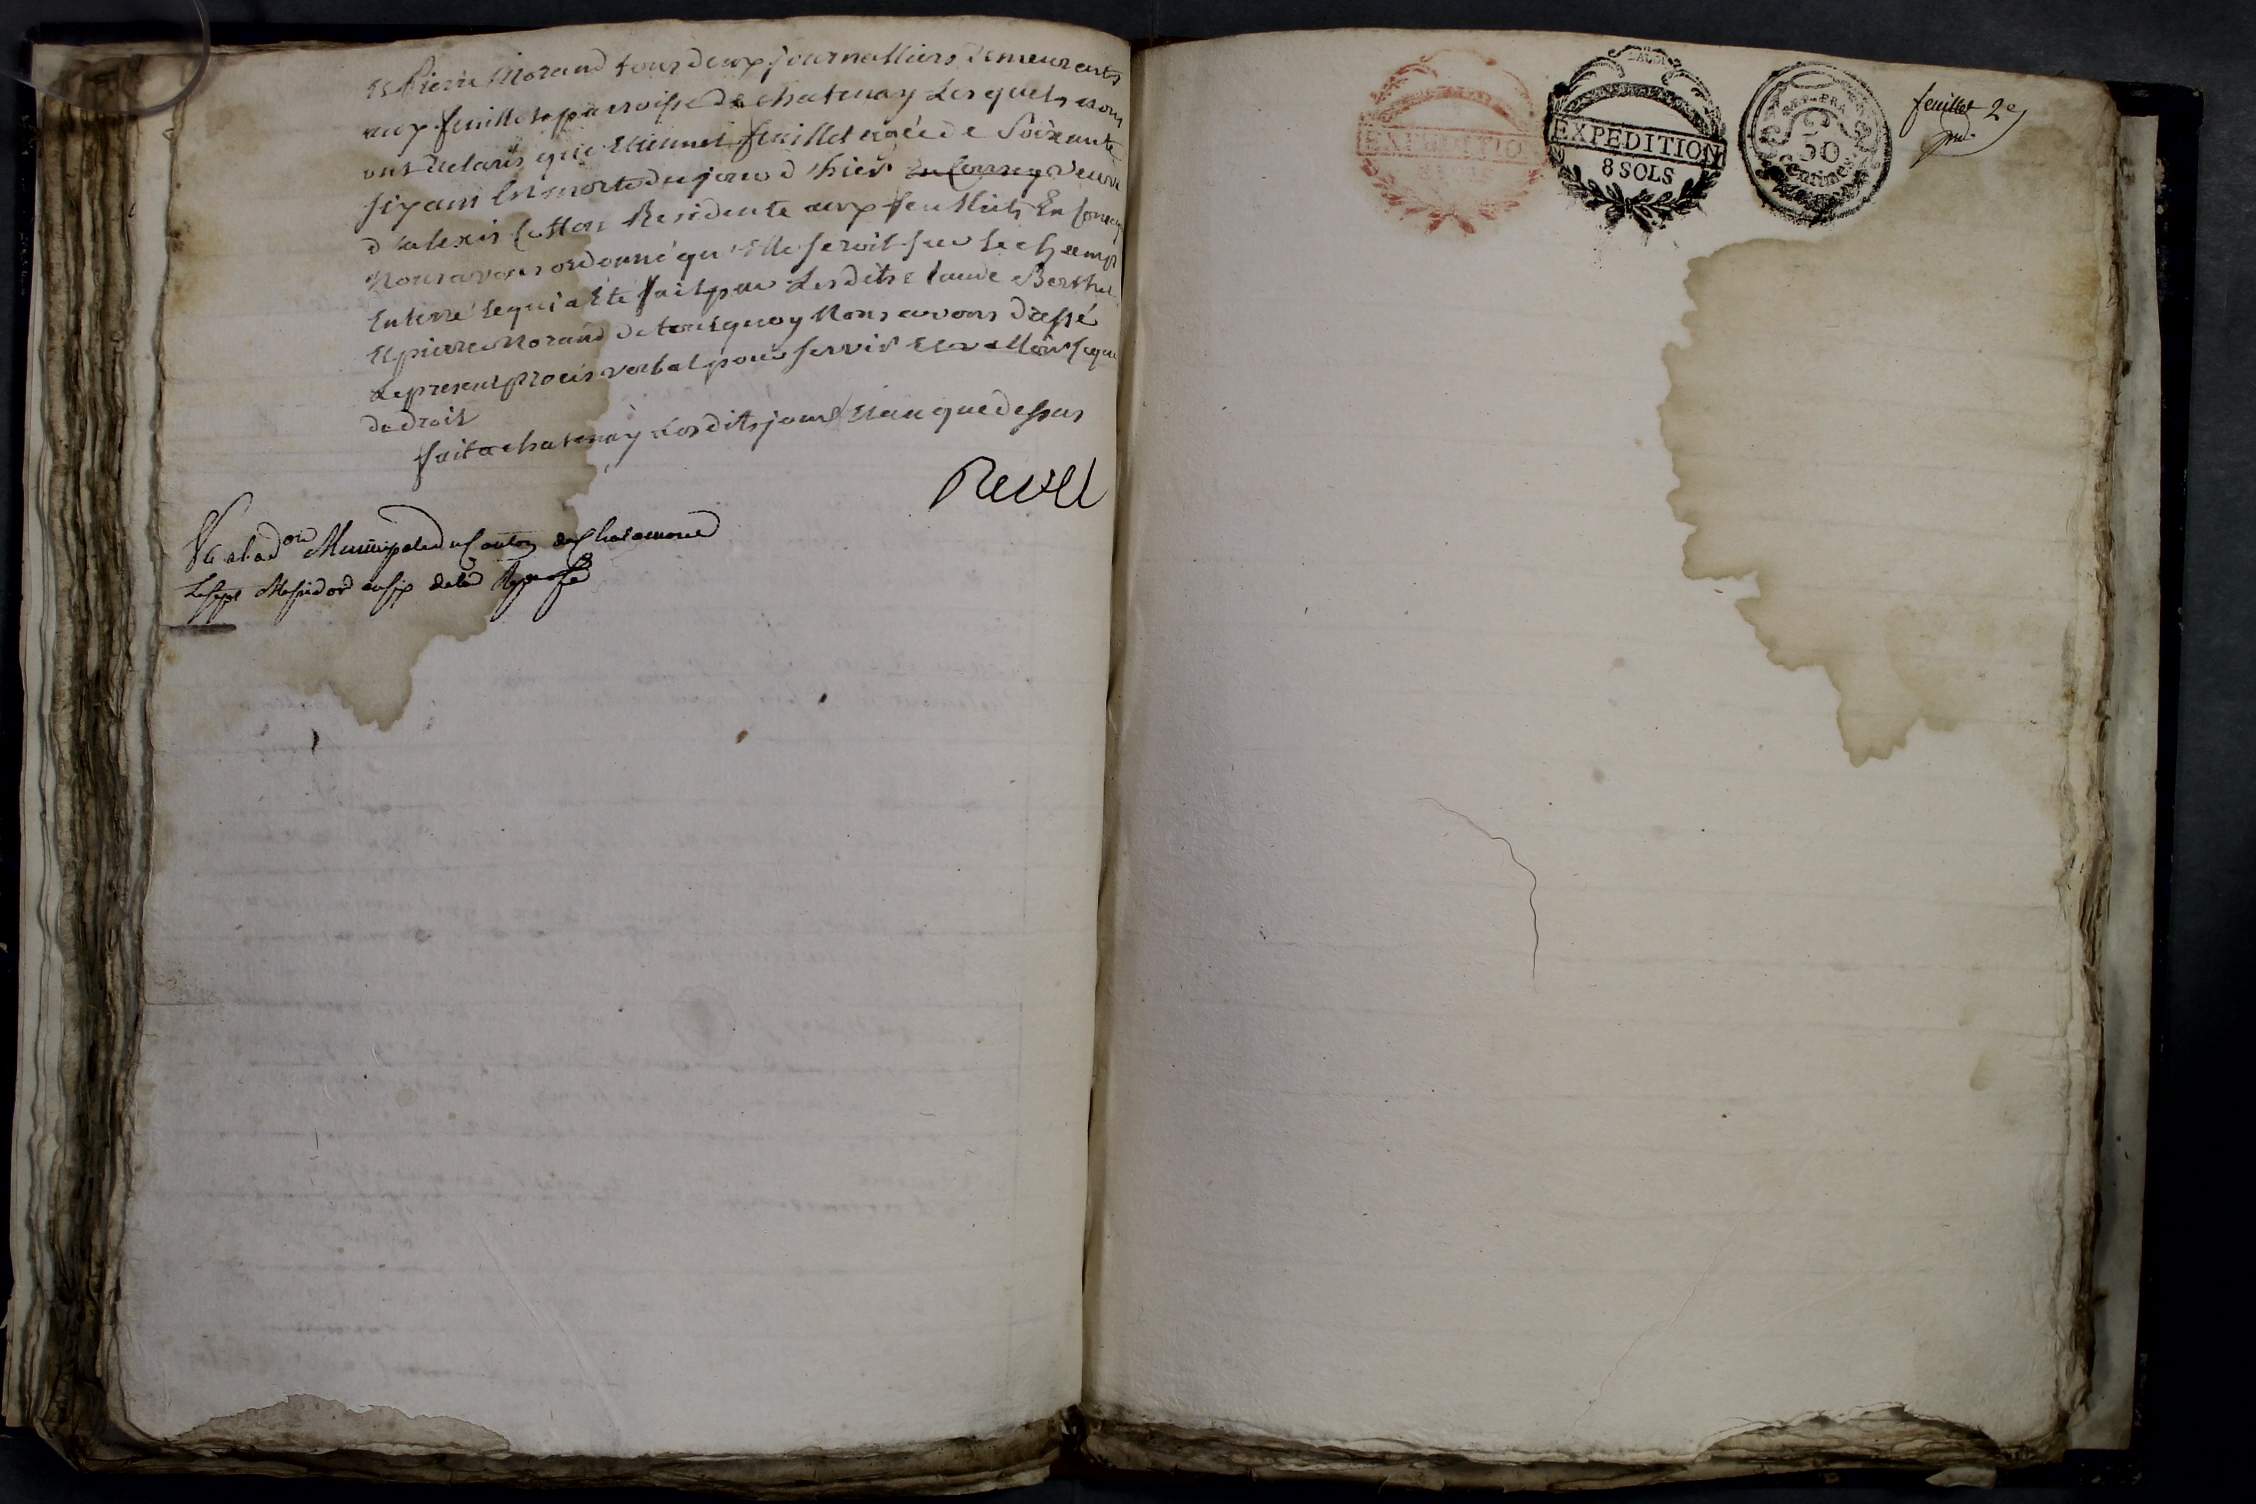 Et Pierre Morand tous deux journalliers demeurants
aux feuillets paroisse de chatenay Lesquels nous
ont declarés que Etiennet feuillet agée de Soixante
six ans Est morte du jour d'hier En Consequ veuve
d'alexis Cotton Residente aux feuillets En Conseq
Nous avons ordonné qu'Elle seroit sur le champ
Enterré ce qui a Eté fait par Lesdits Claude Berthel
Et pierre Morand de tout quoy Nous avons Dressé
Le present procès verbal pour servir Et valloir ce que
de droit
fait a chatenay Lesdits jour Et an que dessus
Revel
Vu a l'ad.on Municipale du Canton de Chalamont
Le sept Messidor an six de la Rep. fse
EXPEDITION
EXPÉDITION
8 SOLS
REP. FRA
50
Centimes
feuillet 2e